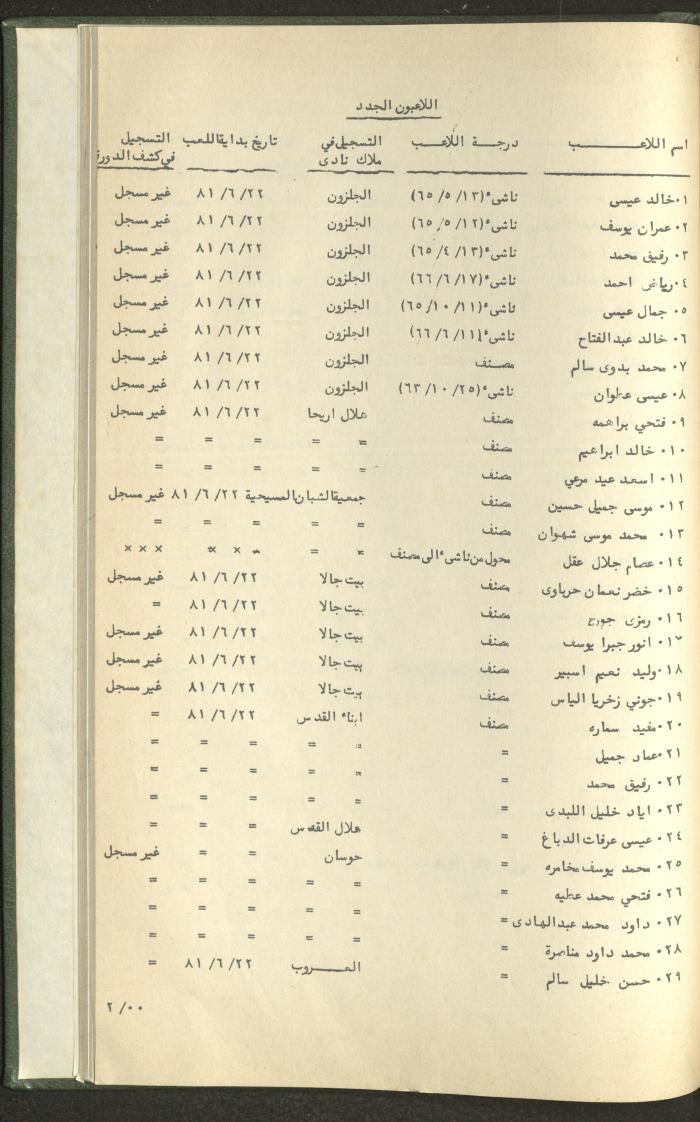 اللاعبون الجدد
اسم اللاعب درجة اللاعب التسجيل في تاريخ بداية اللعب التسجيل
ملاك نادى في كشف الدورة
٠١ خالد عيسى ناشىء (٦٥/٥/١٣) الجلزون ٨١/٦/٢٢ غير مسجل
٠٢ عمران يوسف ناشىء (٦٥/٥/١٢) الجلزون ٨١/٦/٢٢ غير مسجل
٠٣ رفيق محمد ناشىء (٦٥/٤/١٣) الجلزون ٨١/٦/٢٢ غير مسجل
٠٤ رياض احمد ناشىء (٦٦/٦/١٧) الجلزون ٨١/٦/٢٢ غير مسجل
٠٥ جمال عيسى ناشىء (٦٥/١٠/١١) الجلزون ٨١/٦/٢٢ غير مسجل
٠٦ خالد عبدالفتاح ناشىء (٦٦/٦/١١) الجلزون ٨١/٦/٢٢ غير مسجل
٠٧ محمد بدوى سالم مصنف الجلزون ٨١/٦/٢٢ غير مسجل
٠٨ عيسى عطوان ناشىء (٦٣/١٠/٢٥) الجلزون ٨١/٦/٢٢ غير مسجل
٠٩ فتحي براهمه مصنف هلال اريحا ٨١/٦/٢٢ غير مسجل
٠١٠ خالد ابراهيم مصنف = = = = =
٠١١ اسعد عيد مرعي مصنف = = = = =
٠١٢ موسى جميل حسين مصنف جمعية الشبان المسيحية ٨١/٦/٢٢ غير مسجل
٠١٣ محمد موسى شهوان مصنف = = = = =
٠١٤ عصام جلال عقل محول من ناشىء الى مصنف = = × × × × × ×
٠١٥ خضر نعمان حرباوى مصنف بيت جالا ٨١/٦/٢٢ غير مسجل
٠١٦ رمزى جورج مصنف بيت جالا ٨١/٦/٢٢ =
٠١٧ انور جبرا يوسف مصنف بيت جالا ٨١/٦/٢٢ غير مسجل
٠١٨ وليد نعيم اسبير مصنف بيت جالا ٨١/٦/٢٢ غير مسجل
٠١٩ جوني زخريا الياس مصنف بيت جالا ٨١/٦/٢٢ غير مسجل
٠٢٠ مفيد سماره مصنف ابناء القدس ٨١/٦/٢٢ =
٠٢١ عماد جميل = = = = = =
٠٢٢ رفيق محمد = = = = = =
٠٢٣ اياد خليل اللبدى = = = = = =
٠٢٤ عيسى عرفات الدباغ = هلال القدس = = =
٠٢٥ محمد يوسف مخامره = حوسان = = غير مسجل
٠٢٦ فتحي محمد عطيه = = = = = =
٠٢٧ داود محمد عبدالهادى = = = = = =
٠٢٨ محمد داود مناصرة = = = = = =
٠٢٩ حسن خليل سالم = العروب ٨١/٦/٢٢ =
٢/٠٠